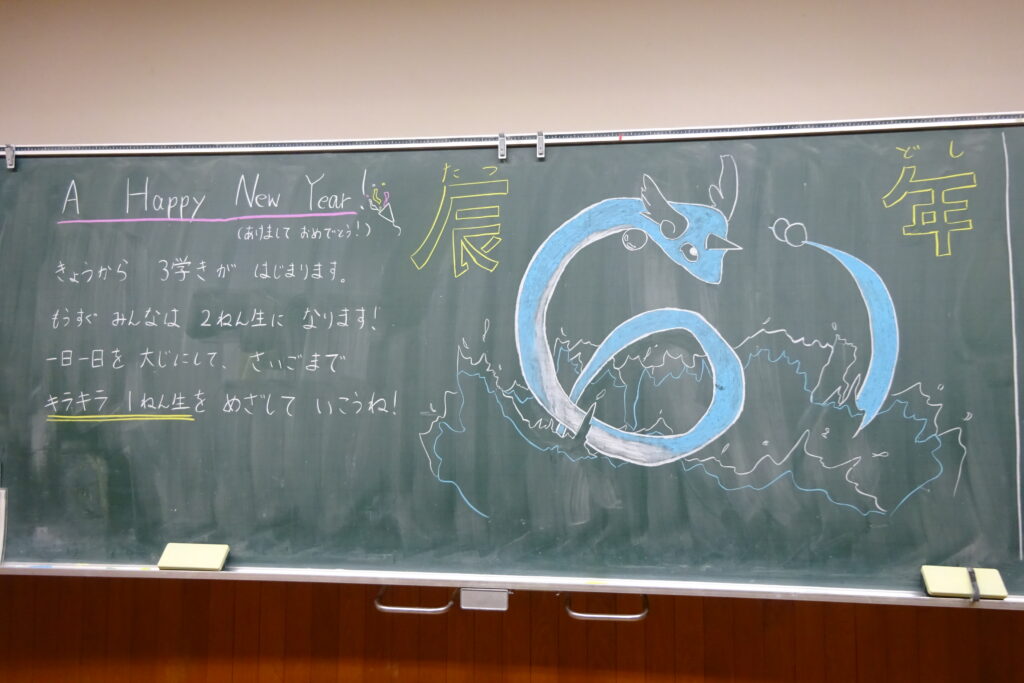 A Happy New Year!
(あけまして おめでとう!)
きょうから 3学きが はじまります。
もうすぐ みんなは 2ねん生に なります!
一日一日を 大じにして、さいごまで
キラキラ 1ねん生を めざして いこうね!
たつ どし
辰 年